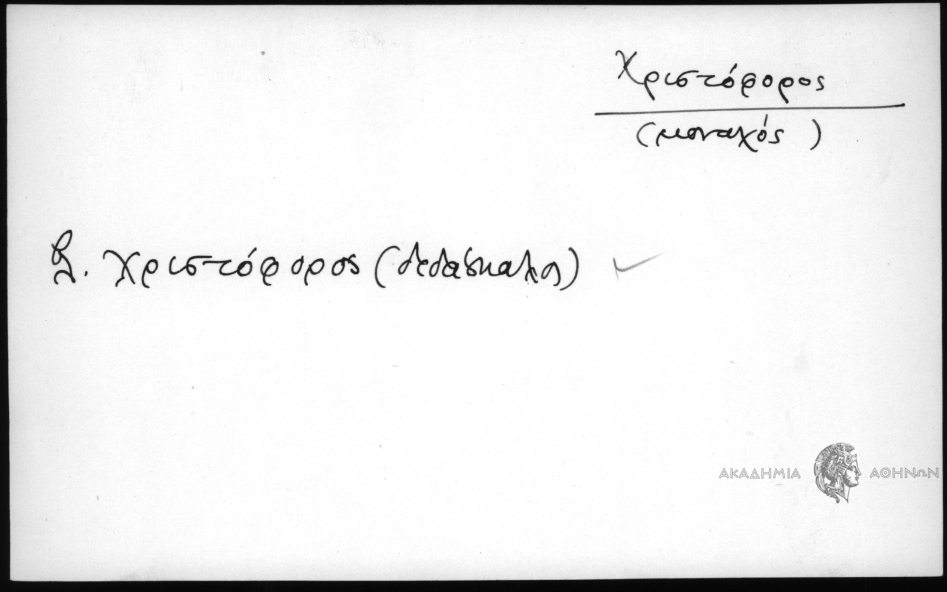 Χριστόφορος
(μοναχός)
β. Χριστόφορος (διδάσκαλος)
ΑΚΑΔΗΜΙΑ ΑΘΗΝΩΝ